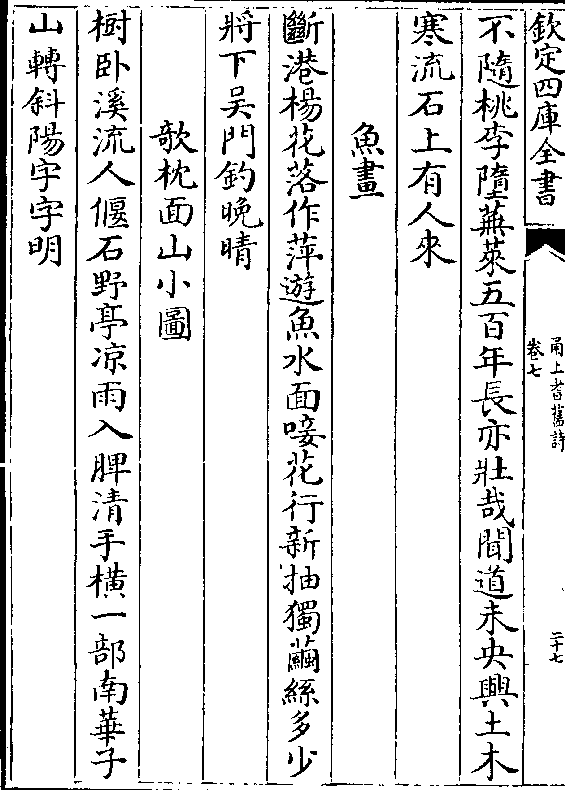 欽定四庫全書
甬上耆舊詩
卷七
二十七
不隨桃李墮蕪萊五百年長亦壯哉聞道未央興土木
寒流石上有人來
魚畫
斷港楊花落作萍遊魚水面唼花行新抽獨繭絲多少
將下吳門釣晚晴
欹枕面山小圖
樹卧溪流人偃石野亭凉雨入脾清手橫一部南華子
山轉斜陽字字明